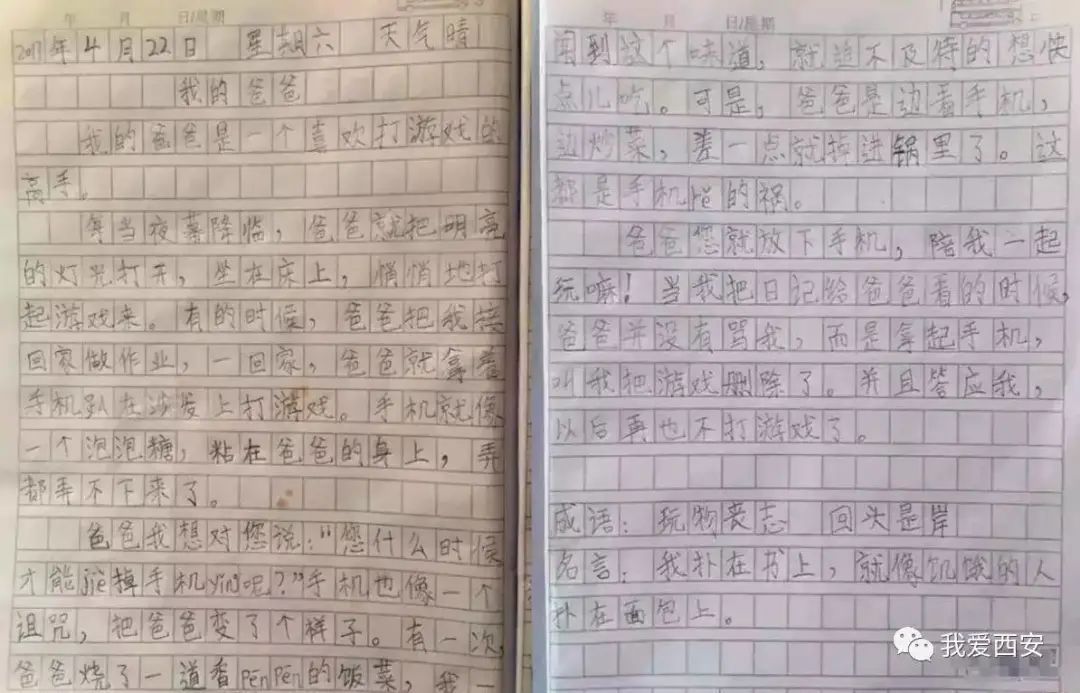 年 月 日/星期
2017年4月22日 星期六 天气晴
我的爸爸
我的爸爸是一个喜欢打游戏的
高手。
每当夜幕降临，爸爸就把明亮
的灯光打开，坐在床上，悄悄地打
起游戏来。有的时候，爸爸把我接
回家做作业，一回家，爸爸就拿着
手机趴在沙发上打游戏。手机就像
一个泡泡糖，粘在爸爸的身上，弄
都弄不下来了。
爸爸我想对您说："您什么时候
才能jiè掉手机yǐn呢？"手机也像一个
诅咒，把爸爸变了个样子。有一次，
爸爸烧了一道香pēnpēn的饭菜，我一
年 月 日/星期
闻到这个味道，就迫不及待的想快
点儿吃。可是，爸爸是边看手机，
边炒菜，差一点就掉进锅里了。这
都是手机惹的祸。
爸爸您就放下手机，陪我一起
玩嘛！当我把日记给爸爸看的时候，
爸爸并没有骂我，而是拿起手机，
叫我把游戏删除了。并且答应我，
以后再也不打游戏了。
成语：玩物丧志 回头是岸
名言：我扑在书上，就像饥饿的人
扑在面包上。
我爱西安